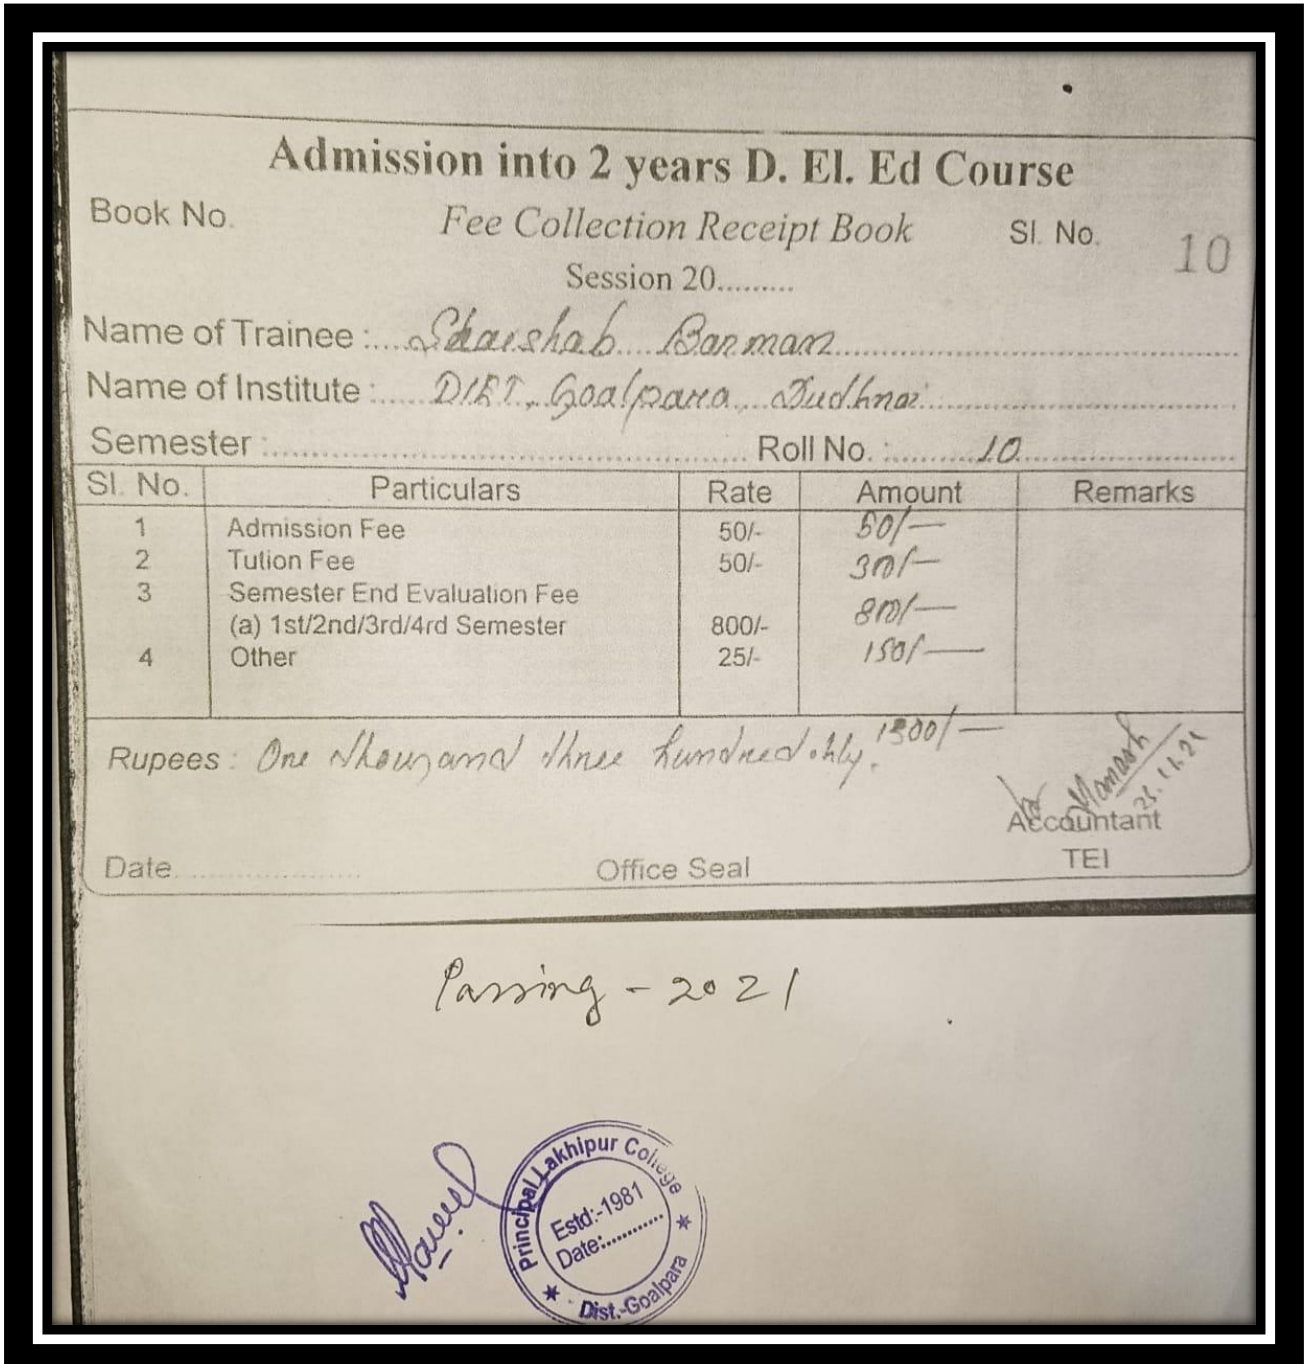 Admission into 2 years D. El. Ed Course
Book No. Fee Collection Receipt Book Sl. No. 10
Session 20.........
Name of Trainee : Shaishab Barman
Name of Institute : DIET, Goalpara, Dudhnoi
Semester : Roll No. : 10
Sl. No. Particulars Rate Amount Remarks
1 Admission Fee 50/- 50/-
2 Tution Fee 50/- 300/-
3 Semester End Evaluation Fee
(a) 1st/2nd/3rd/4rd Semester 800/- 800/-
4 Other 25/- 150/-
Rupees : One thousand three hundred only. 1300/-
Manash
25.11.21
Accountant
Date. Office Seal TEI
Passing - 2021
Principal Lakhipur College
Estd:-1981
Date:............
Dist.-Goalpara